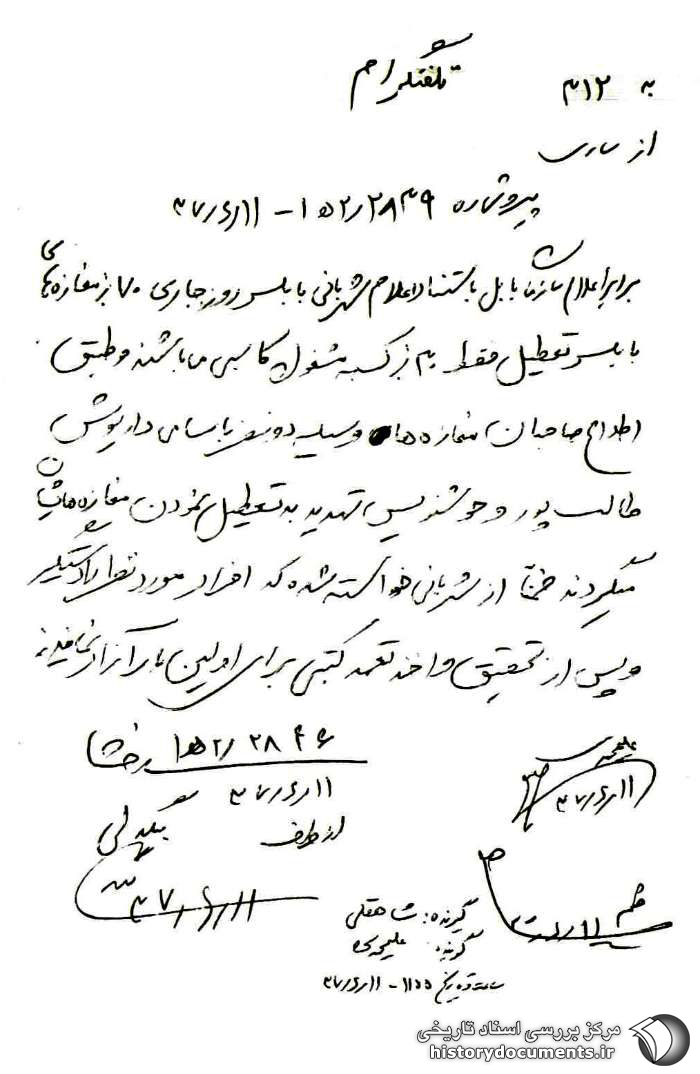 تلفنگرام
به ۳۱۲
از ساری
پیرو شماره ۲۸۳۹/ ۲ه‍ ۱ - ۱۱/ ۶/ ۳۷
برابر اعلام سازمان بابل باستناد اعلام شهربانی بابلسر روز جاری ۷۰٪ مغازه‌های
بابلسر تعطیل فقط ٪ کسبه مشغول کاسبی می‌باشند و طبق
اطلاع صاحبان مغازه‌ها وسیله دو نفر باسامی داریوش
طالب‌پور و خوشنویس تهدید به تعطیل نمودن مغازه‌هایشان
میگردند ضمناً از شهربانی خواسته شده که افراد مورد نظر را دستگیر
و پس از تحقیق و اخذ تعهد کتبی برای اولین بار آزاد نمایند
۲۸۴۶/ ۲ه‍ ۱ رخشا
۱۱/ ۶/ ۳۷
از طرف بیگدلی
۱۱/ ۶/ ۳۷
علیمحمدی
۱۱/ ۶/ ۳۷
گیرنده: شاهقلی
گوینده: علیمحمدی
ساعت و تاریخ ۱۱۵۵ - ۱۱/ ۶/ ۳۷
مرکز بررسی اسناد تاریخی
historydocuments.ir